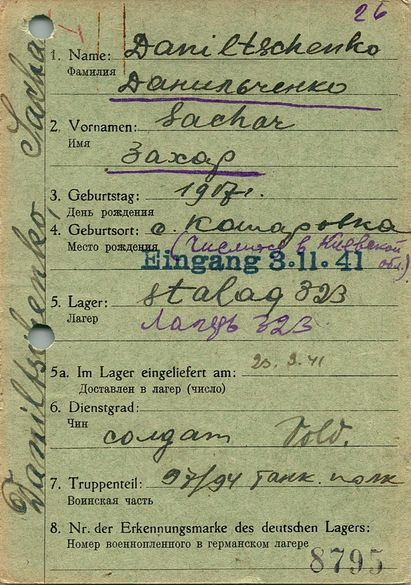 26
1. Name: Daniltschenko
Фамилия Данильченко
2. Vornamen: Sachar
Имя
Захар
3. Geburtstag: 1917г.
День рождения
4. Geburtsort: с. Комаровка
Место рождения (Числится в Киевской обл.)
Eingang 3.11.41
5. Lager: Stalag 323
Лагерь Лагерь 323
5a. Im Lager eingeliefert am: 20.9.41
Доставлен в лагер (число)
6. Dienstgrad:
Чин
солдат Sold.
7. Truppenteil: 97/94 танк. полк
Воинская часть
8. Nr. der Erkennungsmarke des deutschen Lagers:
Номер военнопленного в германском лагере
8795
Daniltschenko, Sachar